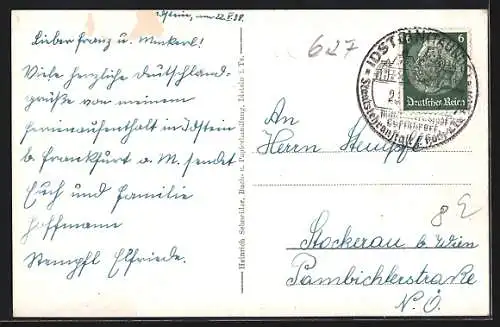 Idstein, am 22.8.38.
Lieber Franz u. Muckerl!
Viele herzliche Deutschland-
grüße von meinem
Ferienaufenthalt in Idstein
b. Frankfurt a. M. sendet
Euch und Familie
Hoffmann
Stempfl Elfriede.
Heinrich Schweitzer, Buch- u. Papierhandlung, Idstein i. Ts.
627
6
Deutsches Reich
IDSTEIN
An
Herrn Stempfl
8 E
Stockerau b. Wien
Pambichlerstraße
N. Ö.